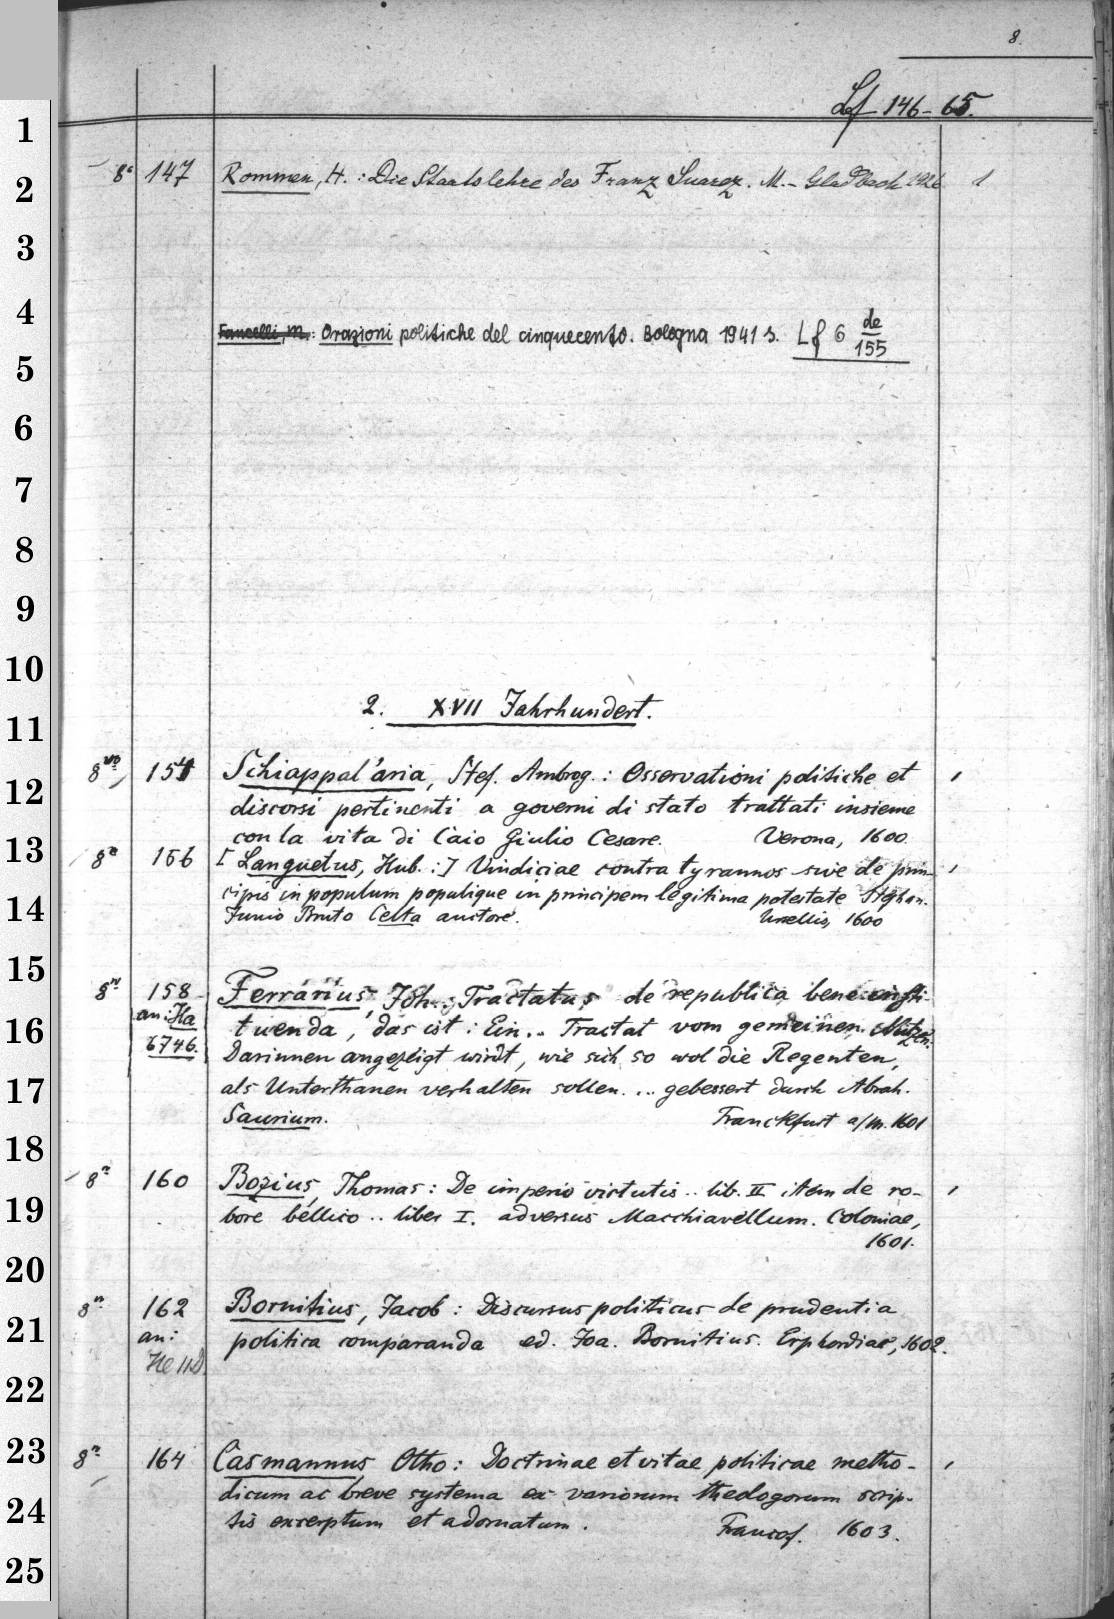 8.
Lf 146-65.
1
2
3
4
5
6
7
8
9
10
11
12
13
14
15
16
17
18
19
20
21
22
23
24
25
8° 147 Rommen, H.: Die Staatslehre des Franz Suarez. M.-Gladbach 1926 1
Fancelli, M.: Orazioni politiche del cinquecento. Bologna 1941 s. Lf 6 de
155
2. XVII Jahrhundert.
8vo 154 Schiappal'aria, Stef. Ambrog.: Osservationi politiche et
discorsi pertinenti a governi di stato trattati insieme
con la vita di Caio Giulio Cesare. Verona, 1600
8° 156 [Languetus, Hub.:] Vindiciae contra tyrannos sive de prin-
cipis in populum populique in principem legitima potestate Stephan.
Junio Bruto Celta auctore. Ursellis, 1600
8° 158 Ferrarius, Joh.: Tractatus de republica bene insti-
an: Ha tuenda, das ist: Ein.. Tractat vom gemeinen Nutzen.
6746 Darinnen angezeigt wirdt, wie sich so wol die Regenten,
als Unterthanen verhalten sollen... gebessert durch Abrah.
Saurium. Franckfurt a/M. 1601
8° 160 Bozius, Thomas: De imperio virtutis.. lib. II item de ro-
bore bellico.. liber I. adversus Macchiavellum. Coloniae,
1601.
8° 162 Bornitius, Jacob: Discursus politicus de prudentia
an: politica comparanda ed. Joa. Bornitius. Erphordiae, 1602.
8° 164 Casmannus Otho: Doctrinae et vitae politicae metho-
dicum ac breve systema ex variorum theologorum scrip-
tis excerptum et adornatum. Francof. 1603.